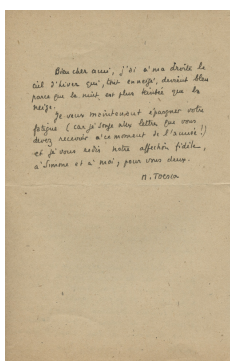 Bien cher ami, j'ai à ma droite le
ciel d'hiver qui, tout enneigé, devient bleu
parce que la nuit est plus teintée que la
neige.
Je veux maintenant épargner votre
fatigue (car je songe aux lettres que vous
devez recevoir à ce moment de l'année !)
et je vous redis notre affection fidèle,
à Simone et à moi, pour vous deux.
M. Toesca